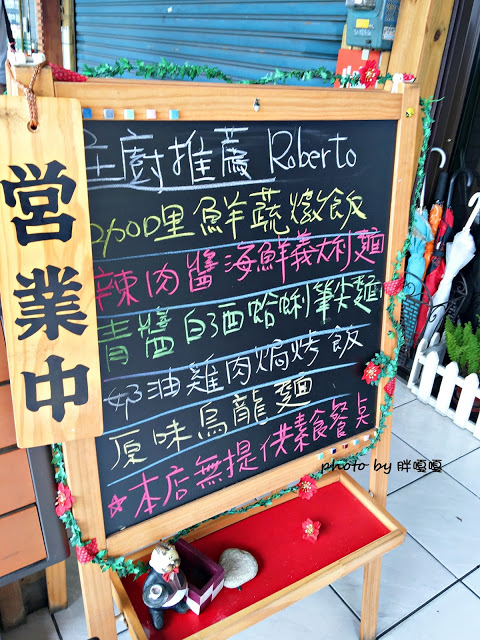 営業中
主廚推薦 Roberto
咖哩鮮蔬燉飯
辣肉醬海鮮義大利麵
青醬白酒蛤蜊筆尖麵
奶油雞肉焗烤飯
原味烏龍麵
☆本店無提供素食餐桌
photo by 胖嘎嘎